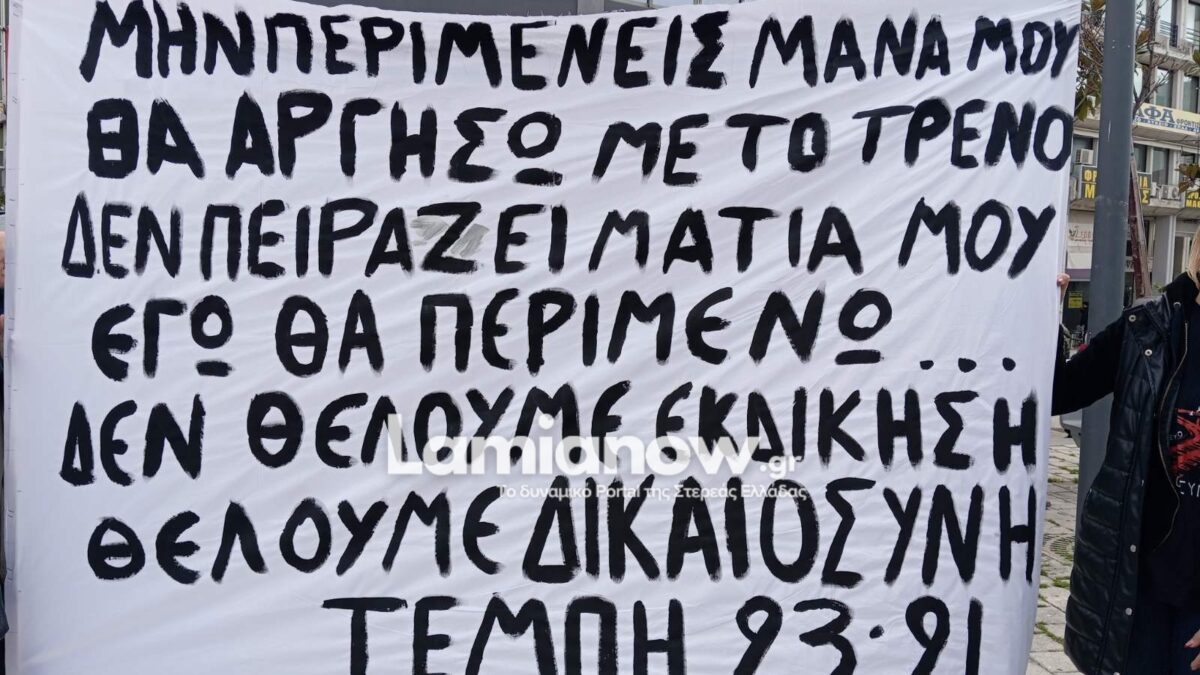 ΜΗΝ ΠΕΡΙΜΕΝΕΙΣ ΜΑΝΑ ΜΟΥ
ΘΑ ΑΡΓΗΣΩ ΜΕ ΤΟ ΤΡΕΝΟ
ΔΕΝ ΠΕΙΡΑΖΕΙ ΜΑΤΙΑ ΜΟΥ
ΕΓΩ ΘΑ ΠΕΡΙΜΕΝΩ...
ΔΕΝ ΘΕΛΟΥΜΕ ΕΚΔΙΚΗΣΗ
ΘΕΛΟΥΜΕ ΔΙΚΑΙΟΣΥΝΗ
ΤΕΜΠΗ 93·91
Lamianow.gr
Το δυναμικό Portal της Στερεάς Ελλάδας